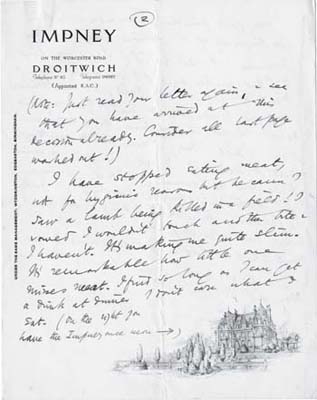 (2)
IMPNEY
ON THE WORCESTER ROAD
DROITWICH
(Appointed R.A.C.)
(Note: Just read your letter again, & see
that you have arrived at this
decision already. Consider all last page
washed out!)
I have stopped eating meat,
not for hygienic reasons but because I
saw a lamb being killed in a field! I
vowed I wouldn't touch another bite &
I haven't. It's making me quite slim.
It's remarkable how little one
misses meat. I find so long as I can get
a drink at dinner I don't care what I
eat. (On the right you
have the Impney once more →)
UNDER THE SAME MANAGEMENT,